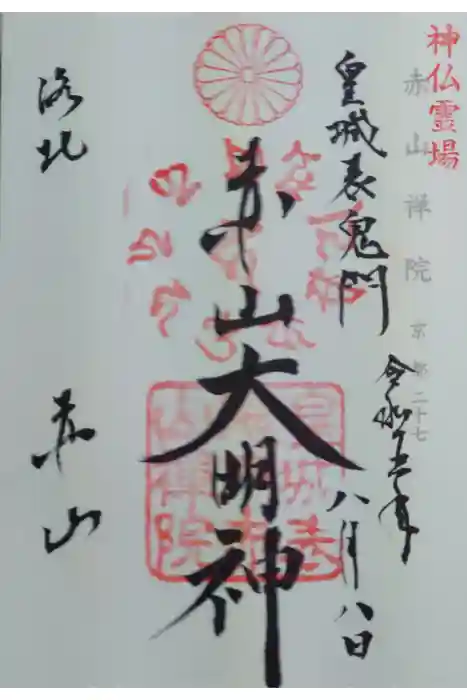 神仏霊場
赤山禅院 京都二十七
皇城表鬼門
令和五年
八月八日
赤山大明神
洛北
赤山